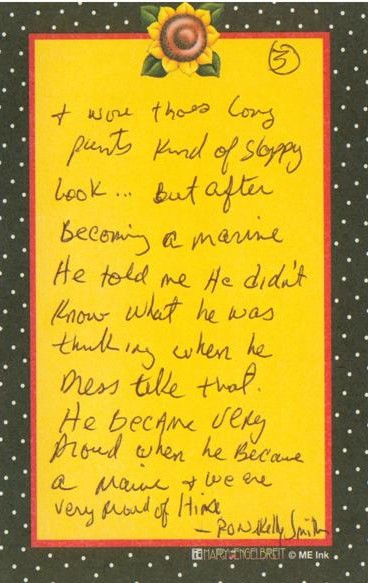 ③
+ wore thoes long
pants kind of sloppy
look... But after
Becoming a marine
He told me He didn't
Know what he was
thinking when he
Dress like that.
He became very
Proud when he Became
a Marine + we are
very proud of Him
- Ron Kelly Smith
ME MARY ENGELBREIT © ME Ink